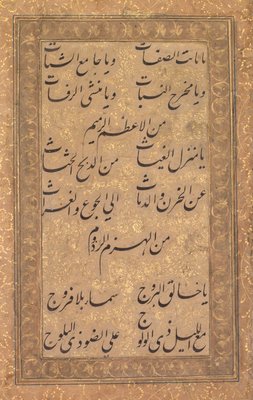 يا ثابت الصفات ويا جامع الشتات
ويا مخرج النبات ويا منشی الرفات
من الاعظم الرميم
يا منزل الغياث من الدلج الحثاث
الحزن الدماث الی الجوع والغراث
من الهزم الرزوم
يا خالق البروج سماء بلا فروج
مع الليل ذی الولوج علی الضوء ذی البلوج